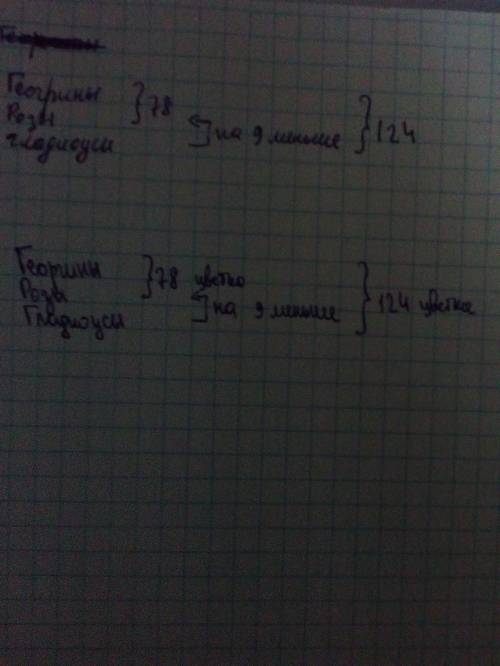 Геогрины } 78
Розы
гладиоусы на 9 меньше } 124
Георгины } 78 цветко
Розы
Гладиоусы на 9 меньше } 124 цветка